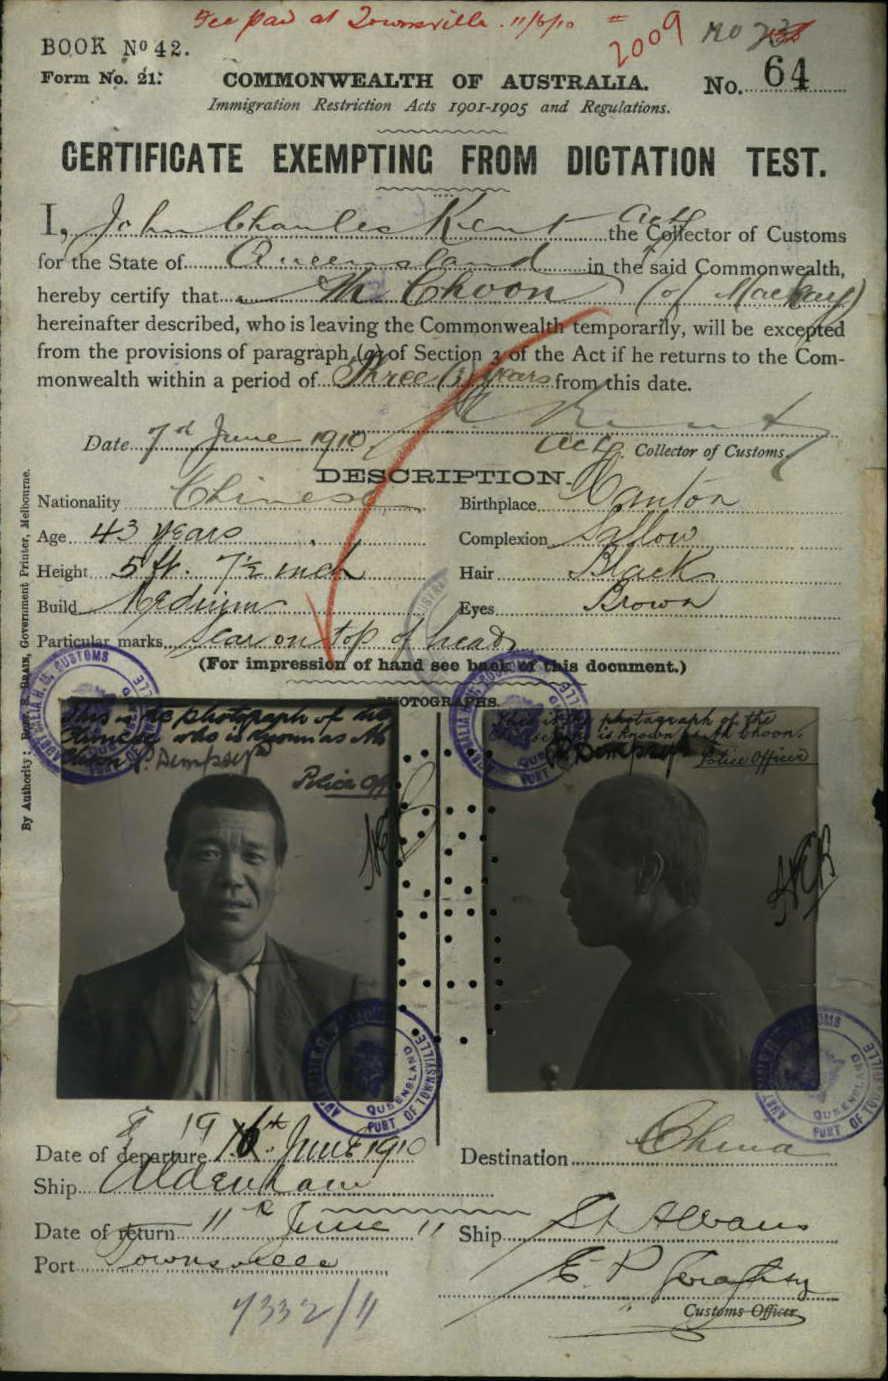 Fee paid at Townsville. 11/6/10
2009
BOOK No 42.
Form No. 21.
COMMONWEALTH OF AUSTRALIA.
No. 64
Immigration Restriction Acts 1901-1905 and Regulations.
CERTIFICATE EXEMPTING FROM DICTATION TEST.
I, John Charles Kent actg the Collector of Customs
for the State of Queensland in the said Commonwealth,
hereby certify that Ah Choon (of Mackay)
hereinafter described, who is leaving the Commonwealth temporarily, will be excepted
from the provisions of paragraph (a) of Section 3 of the Act if he returns to the Com-
monwealth within a period of Three (3) years from this date.
Kent
Date 7th June 1910
Actg Collector of Customs
DESCRIPTION.
Nationality Chinese Birthplace Canton
Age 43 years Complexion Sallow
Height 5 ft. 7½ inch Hair Black
Build Medium Eyes Brown
Particular marks Scar on top of head
(For impression of hand see back of this document.)
PHOTOGRAPHS.
This is the photograph of the
Chinese who is known as Ah
Choon P. Dempsey
Police Off
This is the photograph of the
is known as Ah Choon.
P. Dempsey Police Officer
H.M. CUSTOMS
QUEENSLAND
PORT OF TOWNSVILLE
By Authority: Government Printer, Melbourne.
Date of departure 19 June 1910 Destination China
Ship Aldenham
Date of return 11th June 11 Ship St Albans
Port Townsville E. P. Geraghty
Customs Officer
7332/11